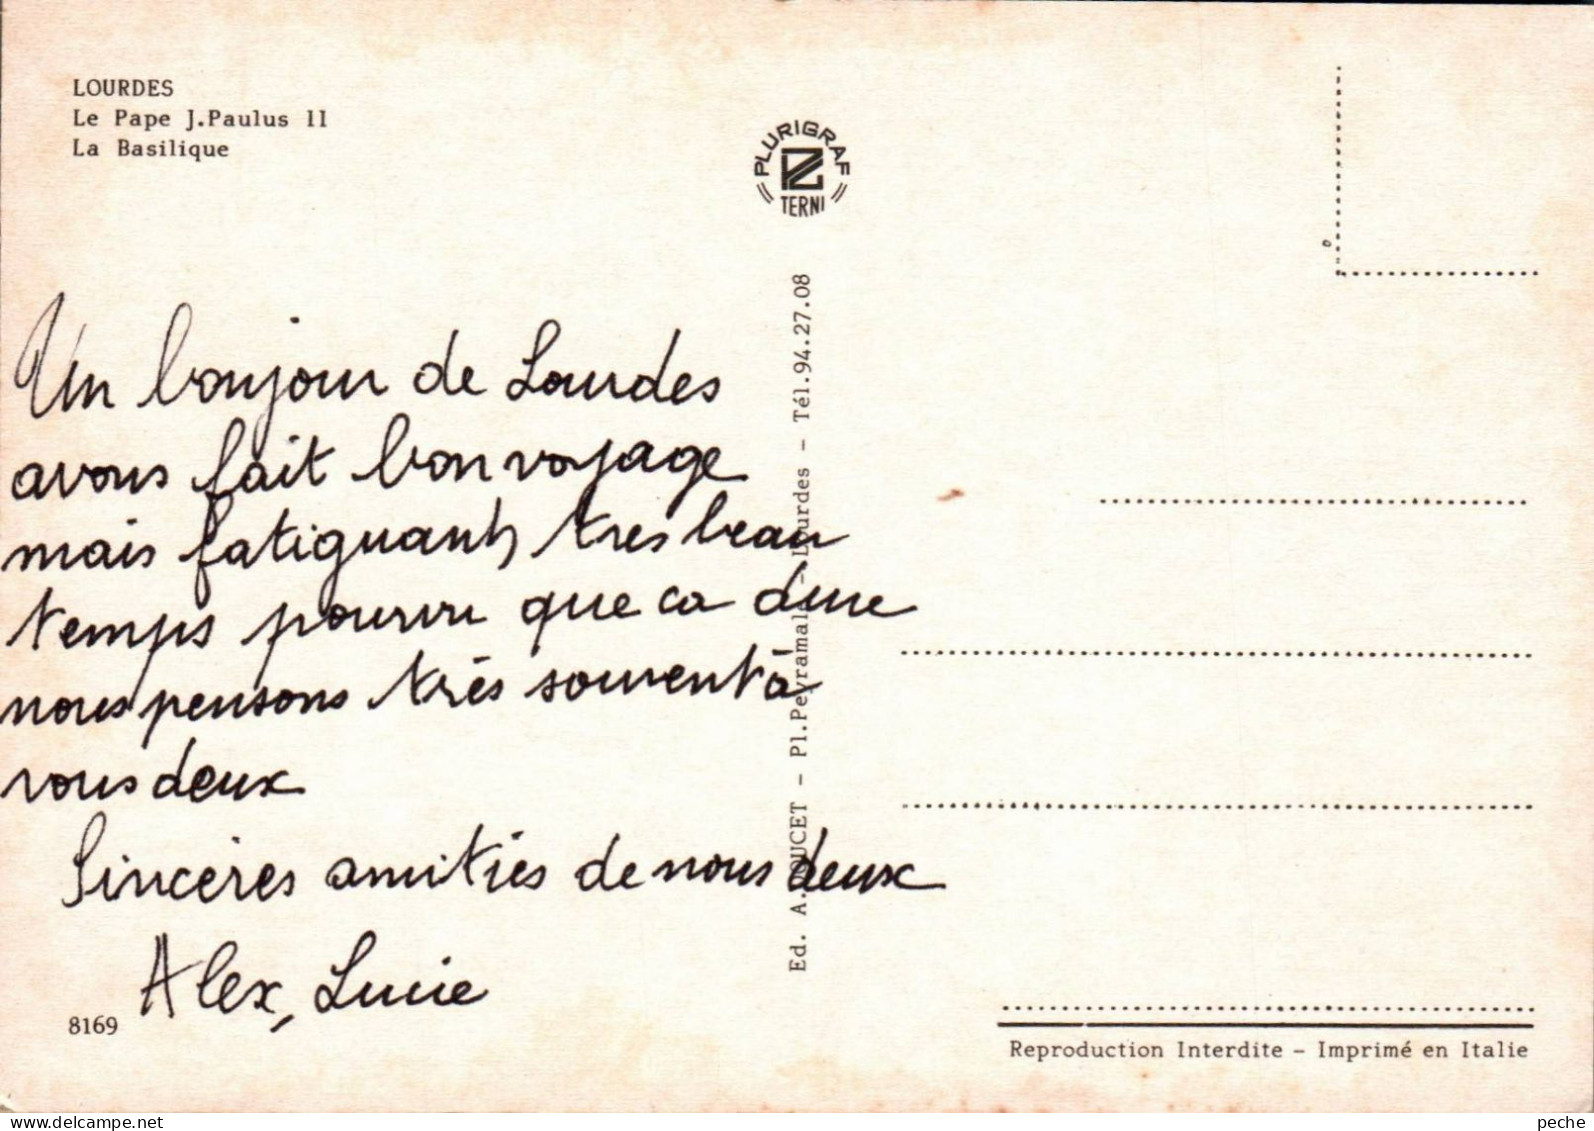 LOURDES
Le Pape J.Paulus II
La Basilique
PLURIGRAF
TERNI
Un bonjour de Lourdes
avons fait bon voyage
mais fatiguant, tres beau
temps pourvu que ca dure
nous pensons très souvent à
vous deux
Sincères amitiés de nous deux
Alex, Lucie
8169
Ed. A. DOUCET - Pl. Peyramale - Lourdes - Tél. 94.27.08
Reproduction Interdite - Imprimé en Italie
delcampe.net
peche